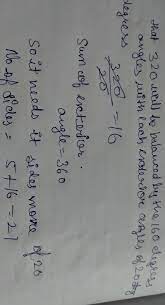 that 320 would be balanced by 16 160 degrees
angles with each exterior angles of 20 deg
degrees
320/20 = 16
Sum of exterior
angle = 360
So it needs 16 sides more of 20
No of sides = 5+16 = 21